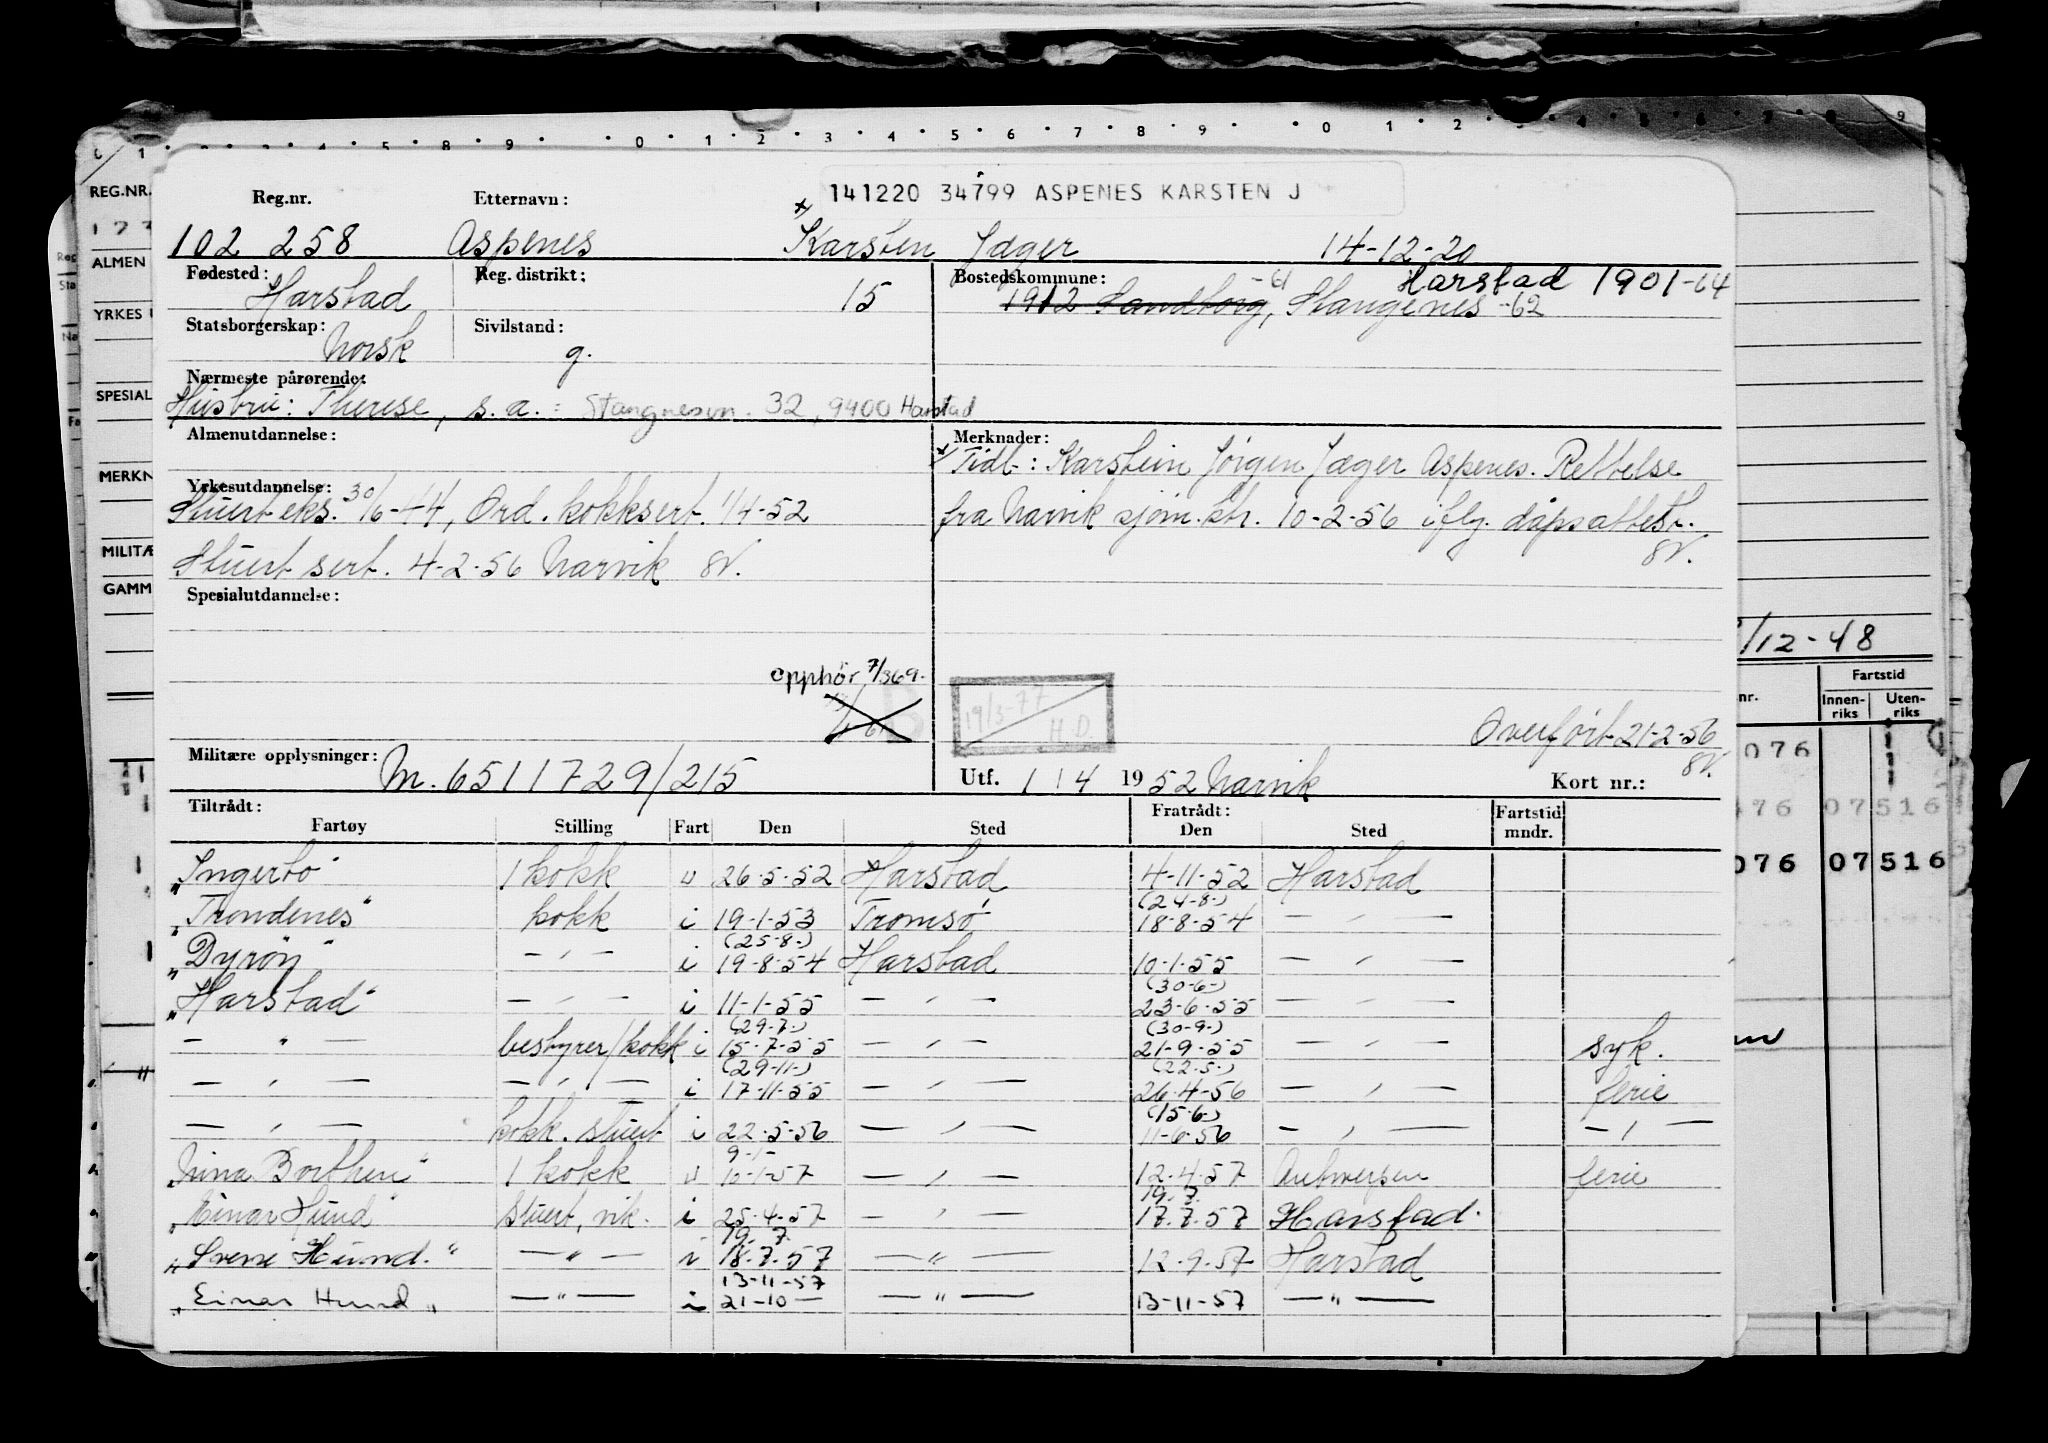 141220 34799 ASPENES KARSTEN J
Reg.nr. Etternavn:
102 258 Aspenes x/ Karsten Jæger 14-12-20
Fødested: Harstad Reg. distrikt: 15 Bostedskommune: 1912 Sandtorg, -61 Stangenes -62 Harstad 1901-64
Statsborgerskap: Norsk Sivilstand: g.
Nærmeste pårørende:
Hustru: Therese, s.a. = Stangnesvn. 32, 9400 Harstad
Almenutdannelse: Merknader:
x/ Tidl.: Karstein Jörgen Jæger Aspenes. Rettelse
Yrkesutdannelse:
Stuert eks. 30/6-44, Ord. kokksert. 1/4-52 fra Narvik sjøm.ktr. 10-2-56 iflg. dåpsattest.
Stuert sert. 4-2-56 Narvik
Spesialutdannelse:
opphör 7/369.
B
19/3-77
H.D.
Overført 21-2-56
Militære opplysninger: M. 6511729/215 Utf. 1/4 1952 Narvik Kort nr.:
Tiltrådt: Fratrådt: Fartstid
Fartøy Stilling Fart Den Sted Den Sted mndr.
"Ingertö" 1 kokk u 26-5-52 Harstad 4-11-52 Harstad
(24-8-)
"Trondenes" kokk i 19-1-53 Tromsö 18-8-54 — " —
(25-8-)
"Dyröy" — " — i 19-8-54 Harstad 10-1-55 — " —
(30-6-)
"Harstad" — " — i 11-1-55 — " — 23-6-55 — " —
(29-7-) (30-9-)
— " — bestyrer/kokk i 15-7-55 — " — 21-9-55 — " — syk.
(29-11-) (22-5-)
— " — — " — i 17-11-55 — " — 26-4-56 — " — ferie
(15-6-)
— " — kokk. stuert i 22-5-56 — " — 11-6-56 — " — — " —
9-1-
"Nina Borthen" 1 kokk u 10-1-57 — " — 12-4-57 Antwerpen ferie
19-7-
"Einar Hund" Stuert, vik. i 25-4-57 — " — 17-7-57 Harstad.
19-7
"Sverre Hund." — " — i 18-7-57 — " — 12-9-57 Harstad
13-11-57
"Einar Hund" — " — i 21-10 — — " — 13-11-57 — " —
REG.NR.
1 2 3
ALMEN
YRKES
SPESIAL
MERKN
MILITÆ
GAMM
/12-48
Fartstid
nr. Innen-riks Uten-riks
076
476 07 516
076 07 516